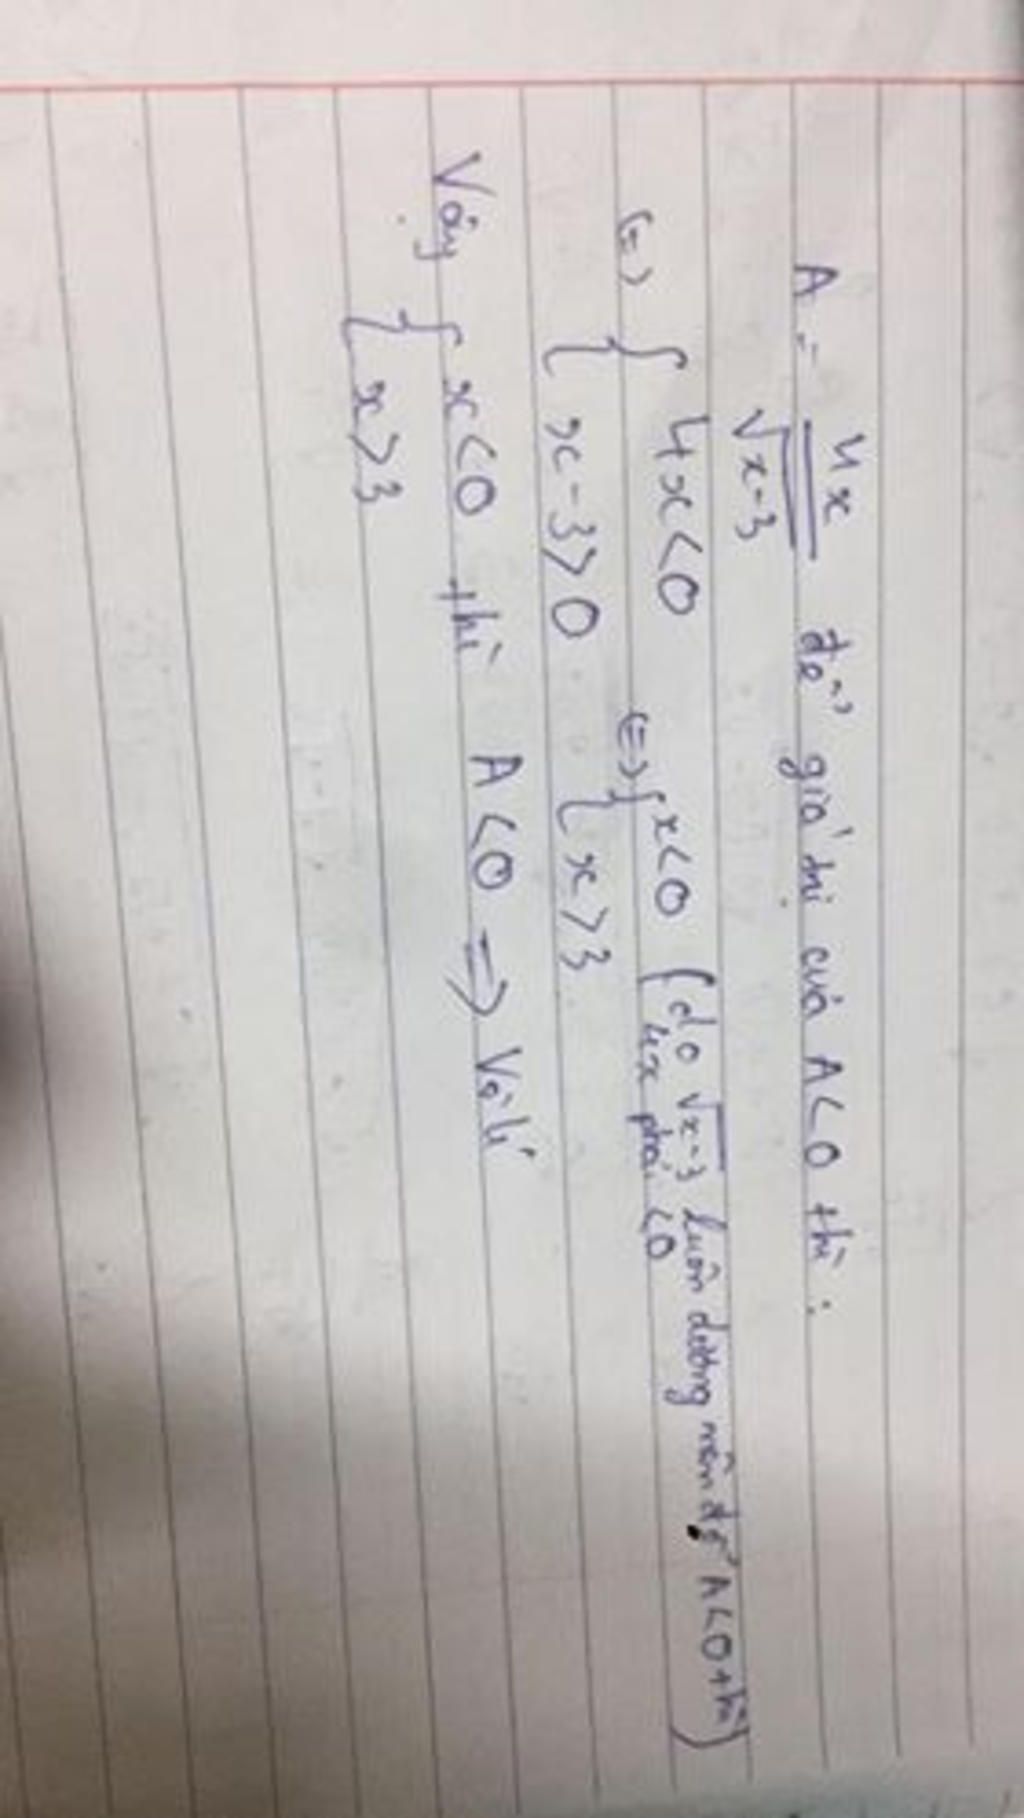 A = 4x / √x-3 để giá trị của A<0 thì :
(=) { 4x<0 (=) { x<0 (do √x-3 luôn dương nên để A<0 thì 4x phải <0)
{ x-3>0 { x>3
Vậy { x<0 thì A<0 => Vô lí
{ x>3